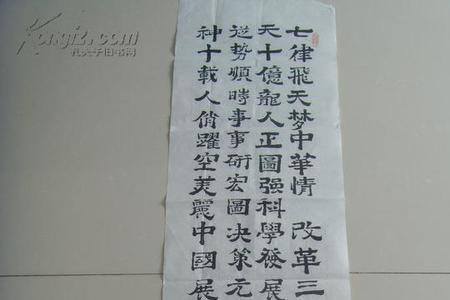 七律飛天梦中華情 改革三
天十億龍人正圖强科學發展
逆势順時事事研宏圖决策元
神十載人俏躍空美麗中國展
Kongfz.com